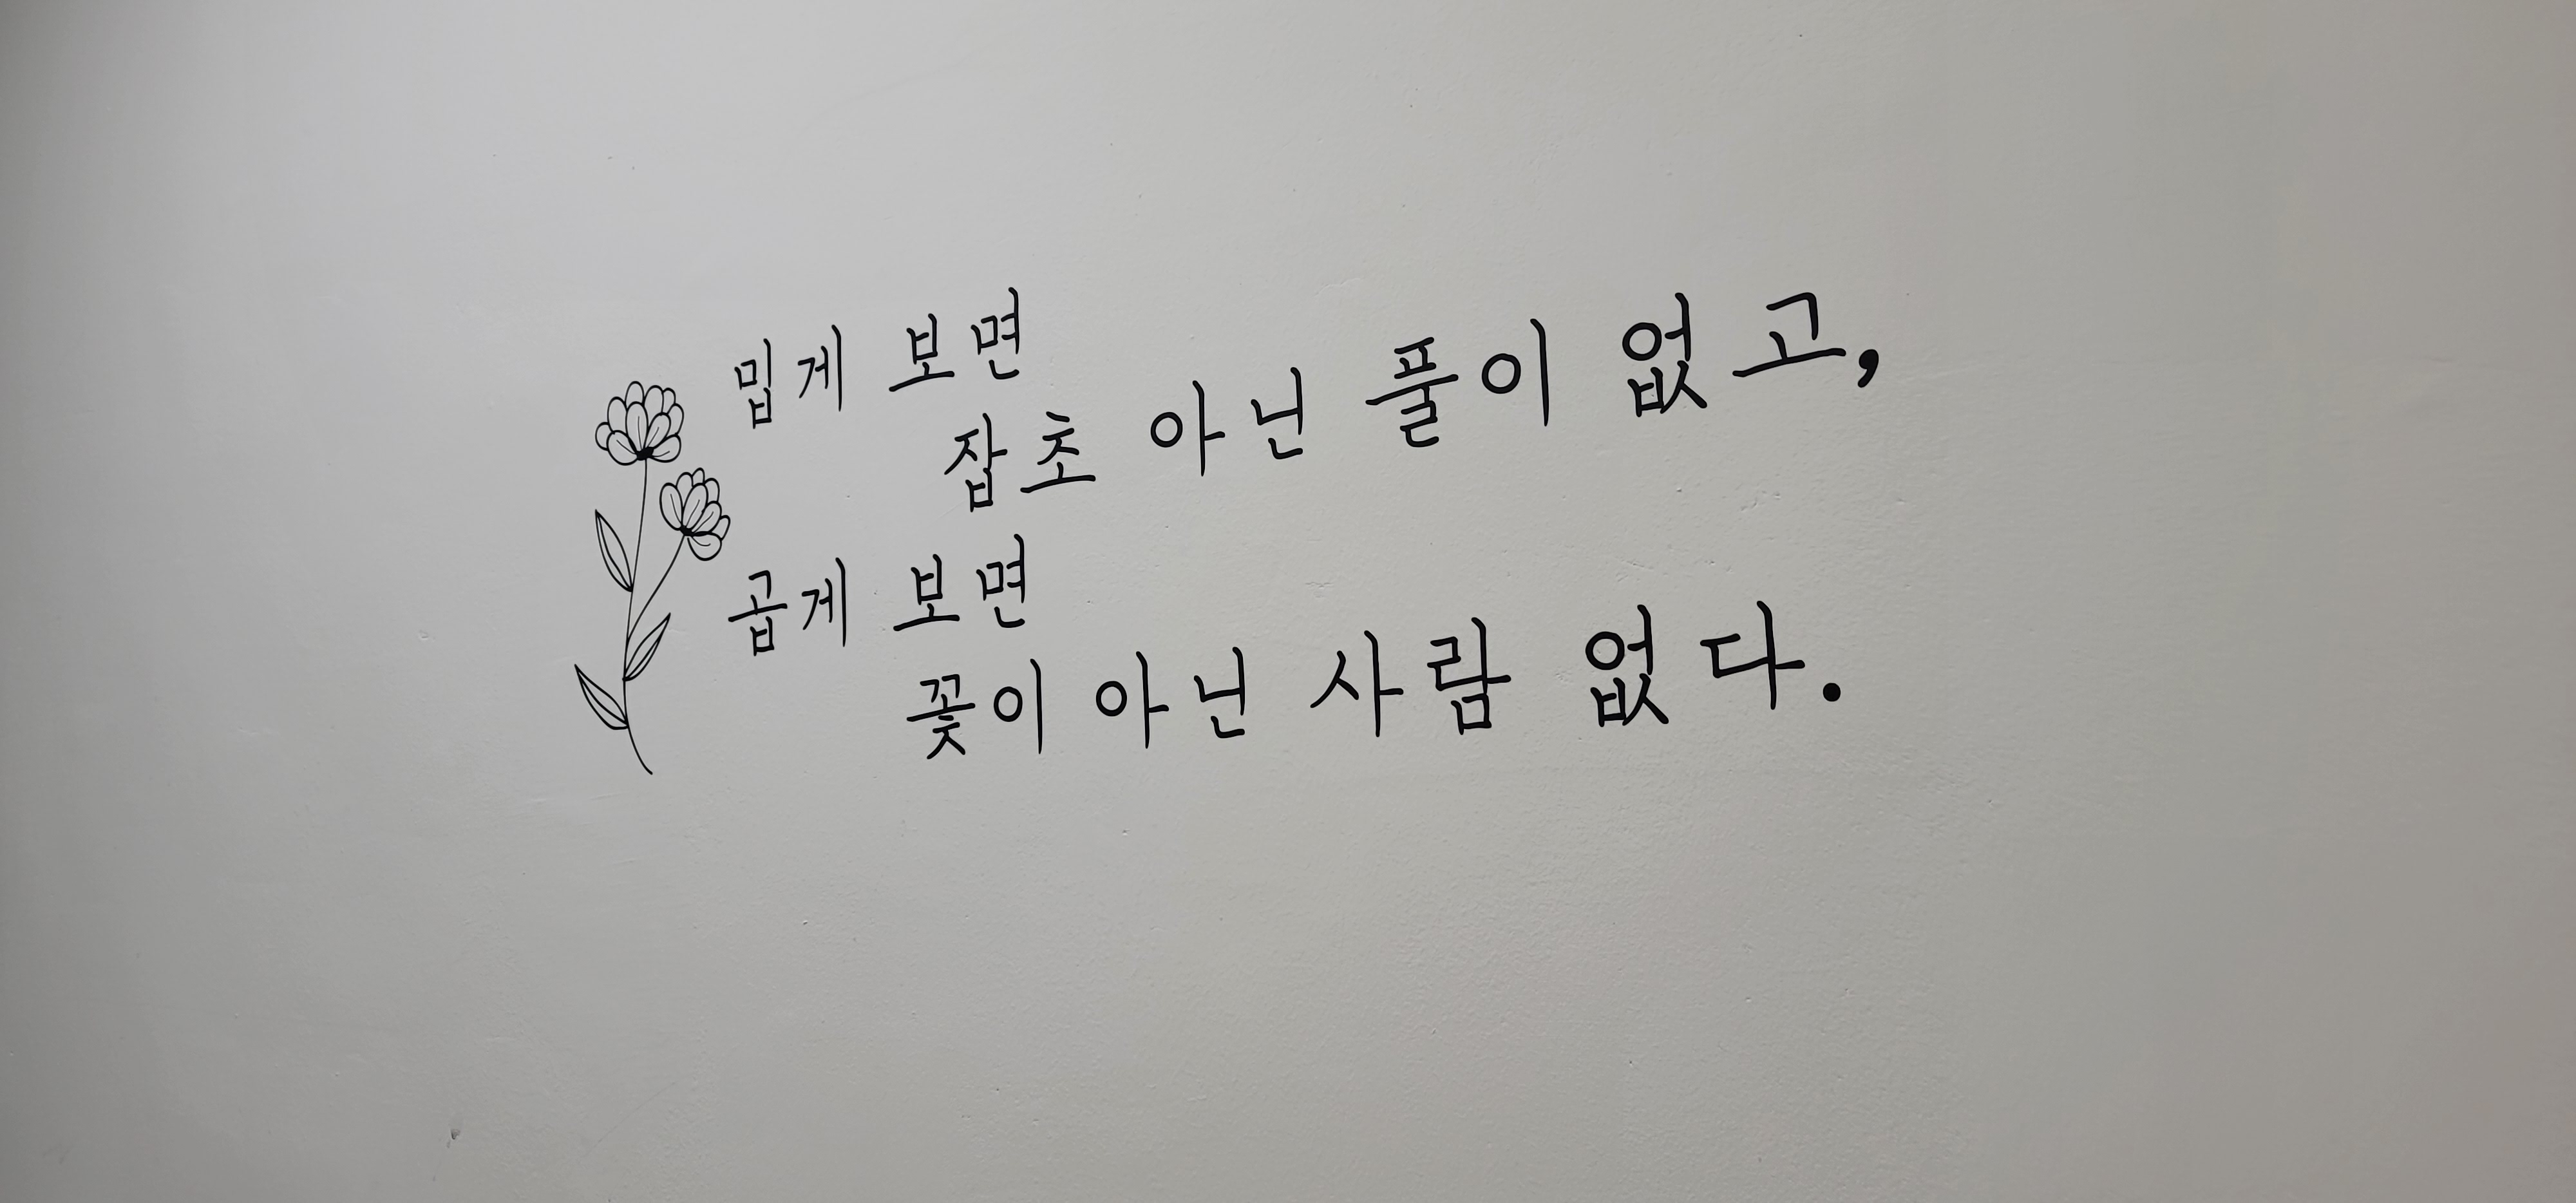 밉게 보면
잡초 아닌 풀이 없고,
곱게 보면
꽃이 아닌 사람 없다.